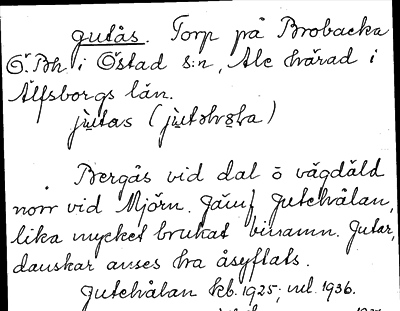 gutås. Torp på Brobacka
Ö. Bh i Östad s:n, Ale härad i
Älfsborgs län.
jutas (jutshåla)
Bergås vid dal o vägdäld
norr vid Mjörn. Jämf Gutehålan,
lika mycket brukat binamn. Jutar,
danskar anses ha åsyftats.
Gutehålan kb. 1925; upl. 1936.